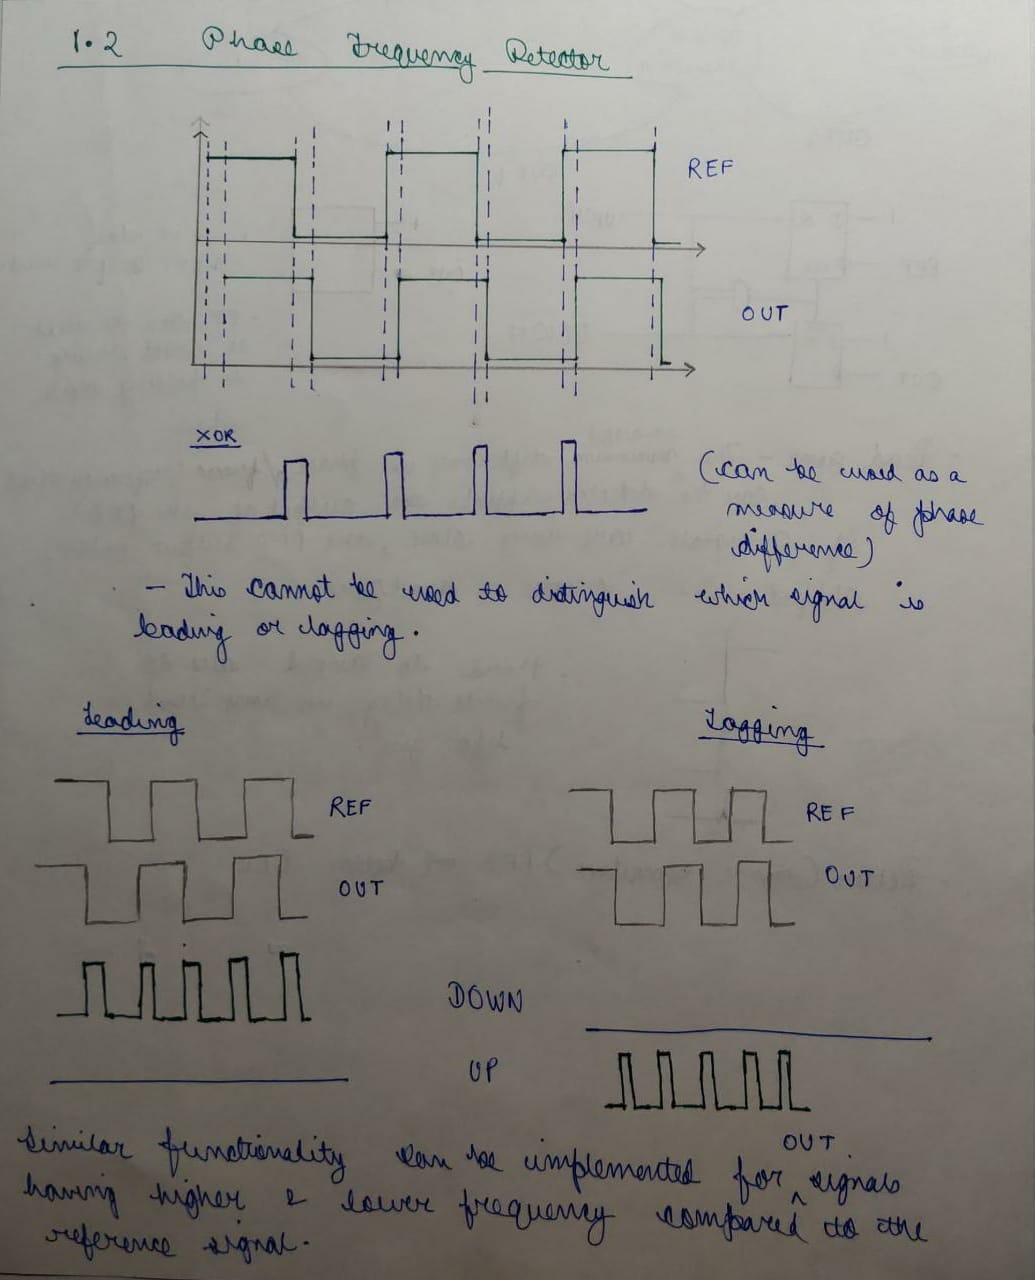 1.2 Phase Frequency Detector
REF
OUT
XOR
(can be used as a
measure of phase
difference)
- This cannot be used to distinguish which signal is
leading or lagging.
Leading
Lagging
REF
REF
OUT
OUT
DOWN
UP
OUT
Similar functionality can be implemented for ^ signals
having higher & lower frequency compared to the
reference signal.